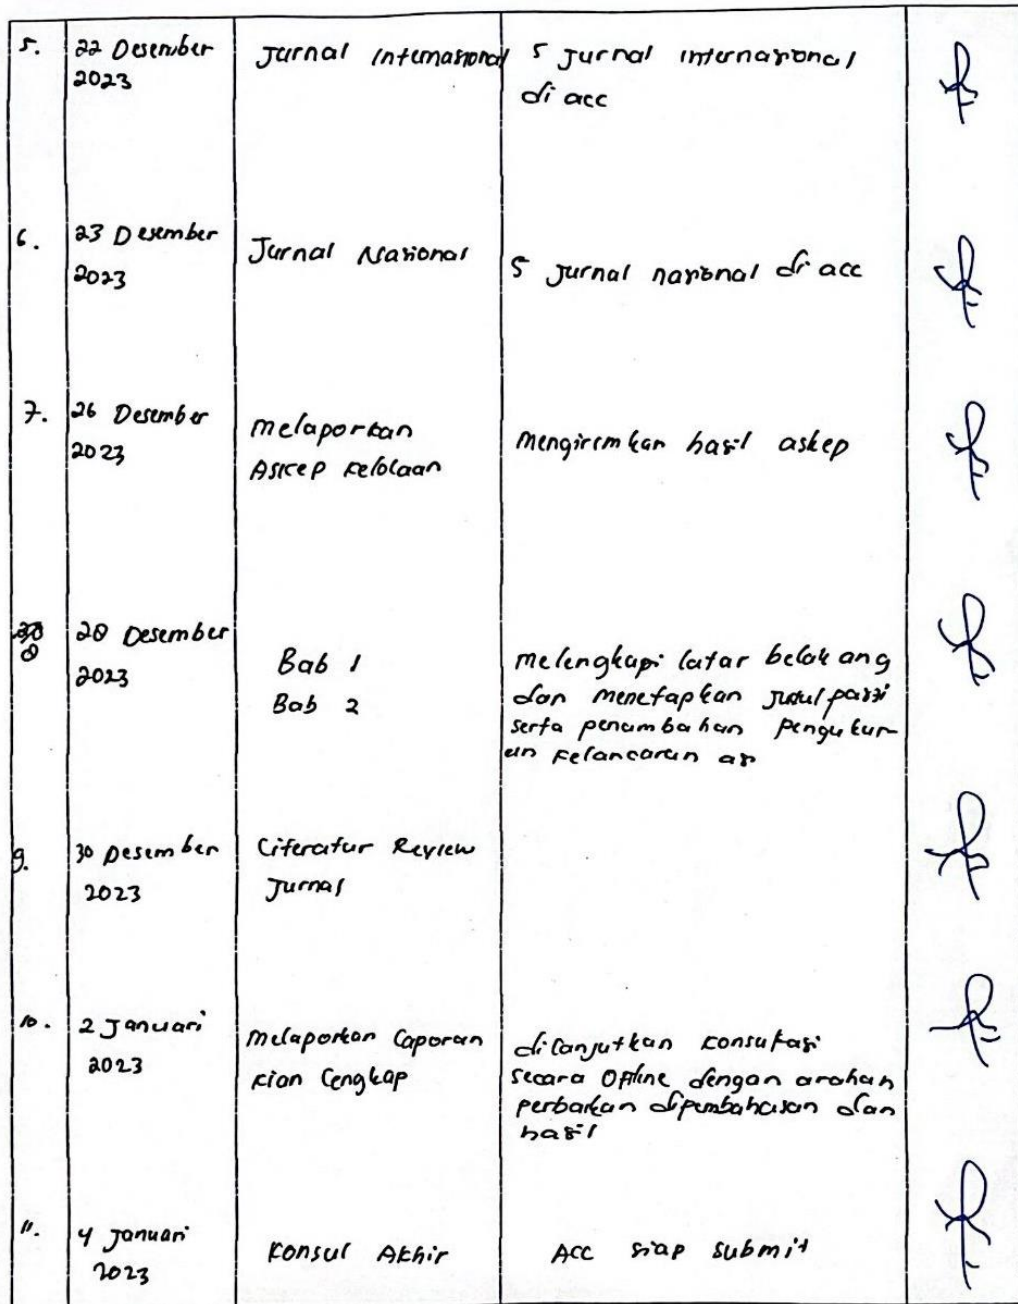 5. 22 Desember 2023
Jurnal Internasional
5 Jurnal internasional
di acc
6. 23 Desember
2023
Jurnal Nasional
5 Jurnal nasional di acc
7. 26 Desember
2023
Melaporkan
Askep Kelolaan
Mengirimkan hasil askep
8 28 Desember
2023
Bab 1
Bab 2
Melengkapi latar belakang
dan menetapkan judul pasti
serta penambahan pengukur-
an kelancaran asi
9. 30 Desember
2023
Literatur Review
Jurnal
10. 2 Januari
2023
Melaporkan Laporan
Kian Lengkap
dilanjutkan konsultasi
secara Offline dengan arahan
perbaikan dipembahasan dan
hasil
11. 4 Januari
2023
Konsul Akhir
Acc siap submit